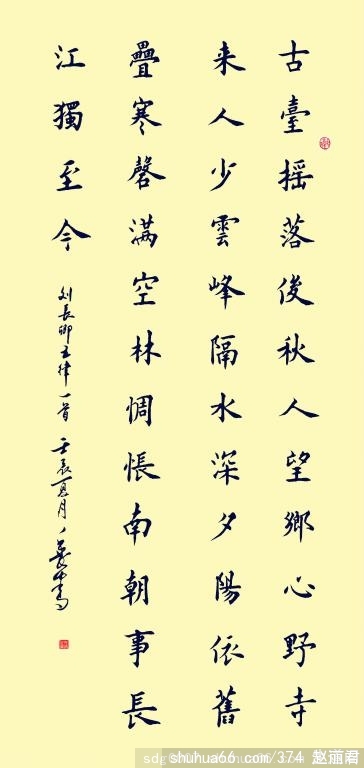 古臺摇落後秋人望鄉心野寺
来人少雲峰隔水深夕陽依舊
疊寒磬满空林惆悵南朝事長
江獨至今
刘長卿五律一首 壬辰夏月
shuhua66.com/374 赵丽君